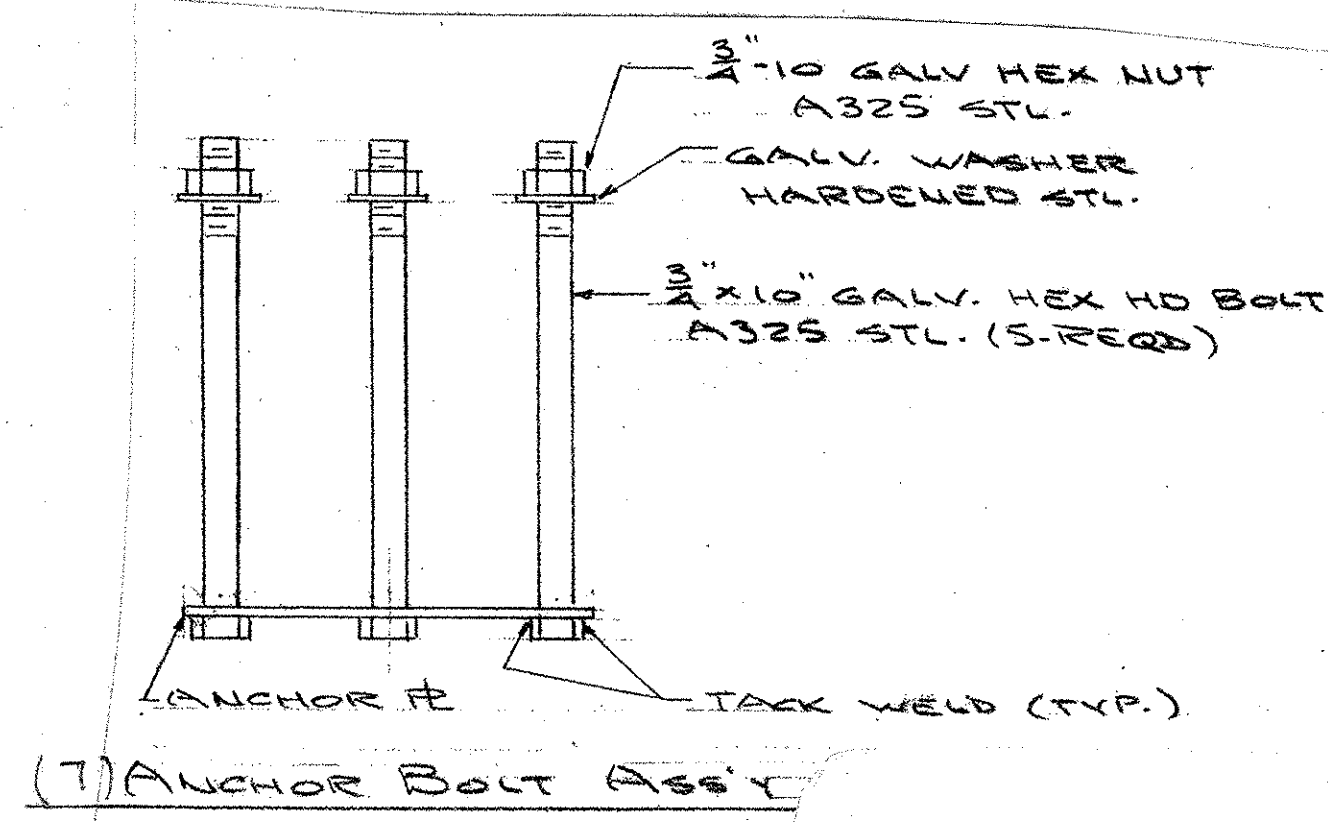 3/4"-10 GALV HEX NUT
A325 STL.
GALV. WASHER
HARDENED STL.
3/4" x 10" GALV. HEX HD BOLT
A325 STL. (5-REQD)
ANCHOR PL
TACK WELD (TYP.)
(7) ANCHOR BOLT ASS'Y